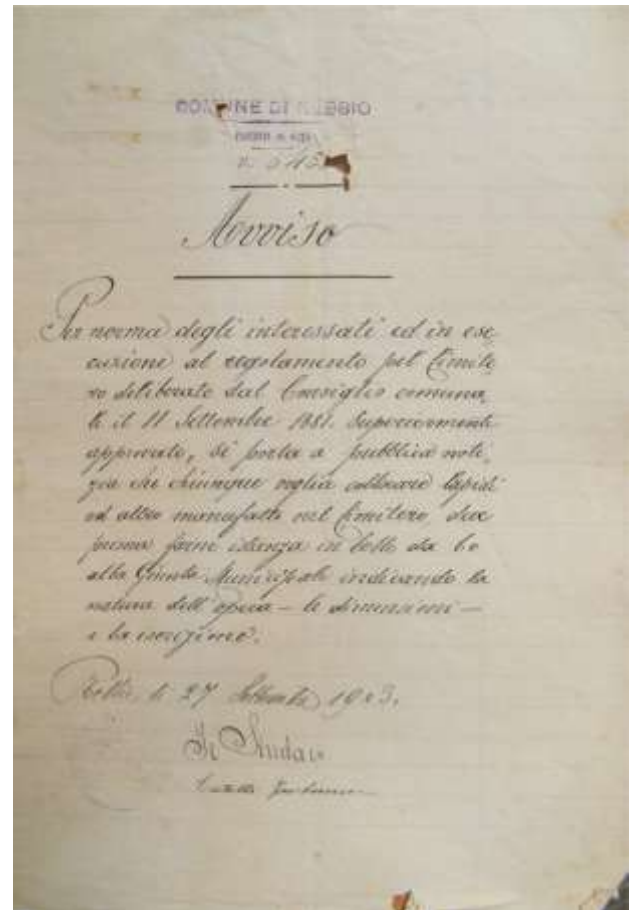 COMUNE DI REBBIO
Avviso
Per norma degli interessati ed in ese
cuzione al regolamento pel Cimite
ro deliberato dal Consiglio comuna,
le il 11 Settembre 1881. Superiormente
approvato, si porta a pubblica noti,
zia che chiunque voglia collocare lapidi
od altro manufatto nel Cimitero, deve
prima farne istanza in bollo da 60
alla Giunta Municipale indicando la
natura dell'opera — le dimensioni —
e la iscrizione.
li 27 Settembre 1903.
Il Sindaco